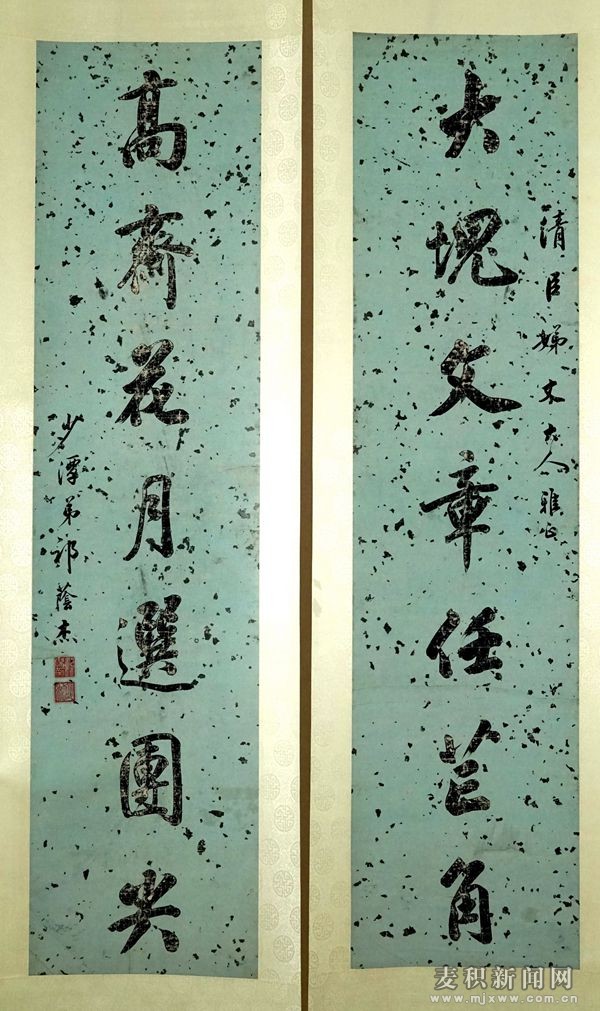 大塊文章任芒角
清臣姊丈大人雅正
高齋花月選團尖
少潭弟祁蔭杰
麦积新闻网
www.mjxww.com